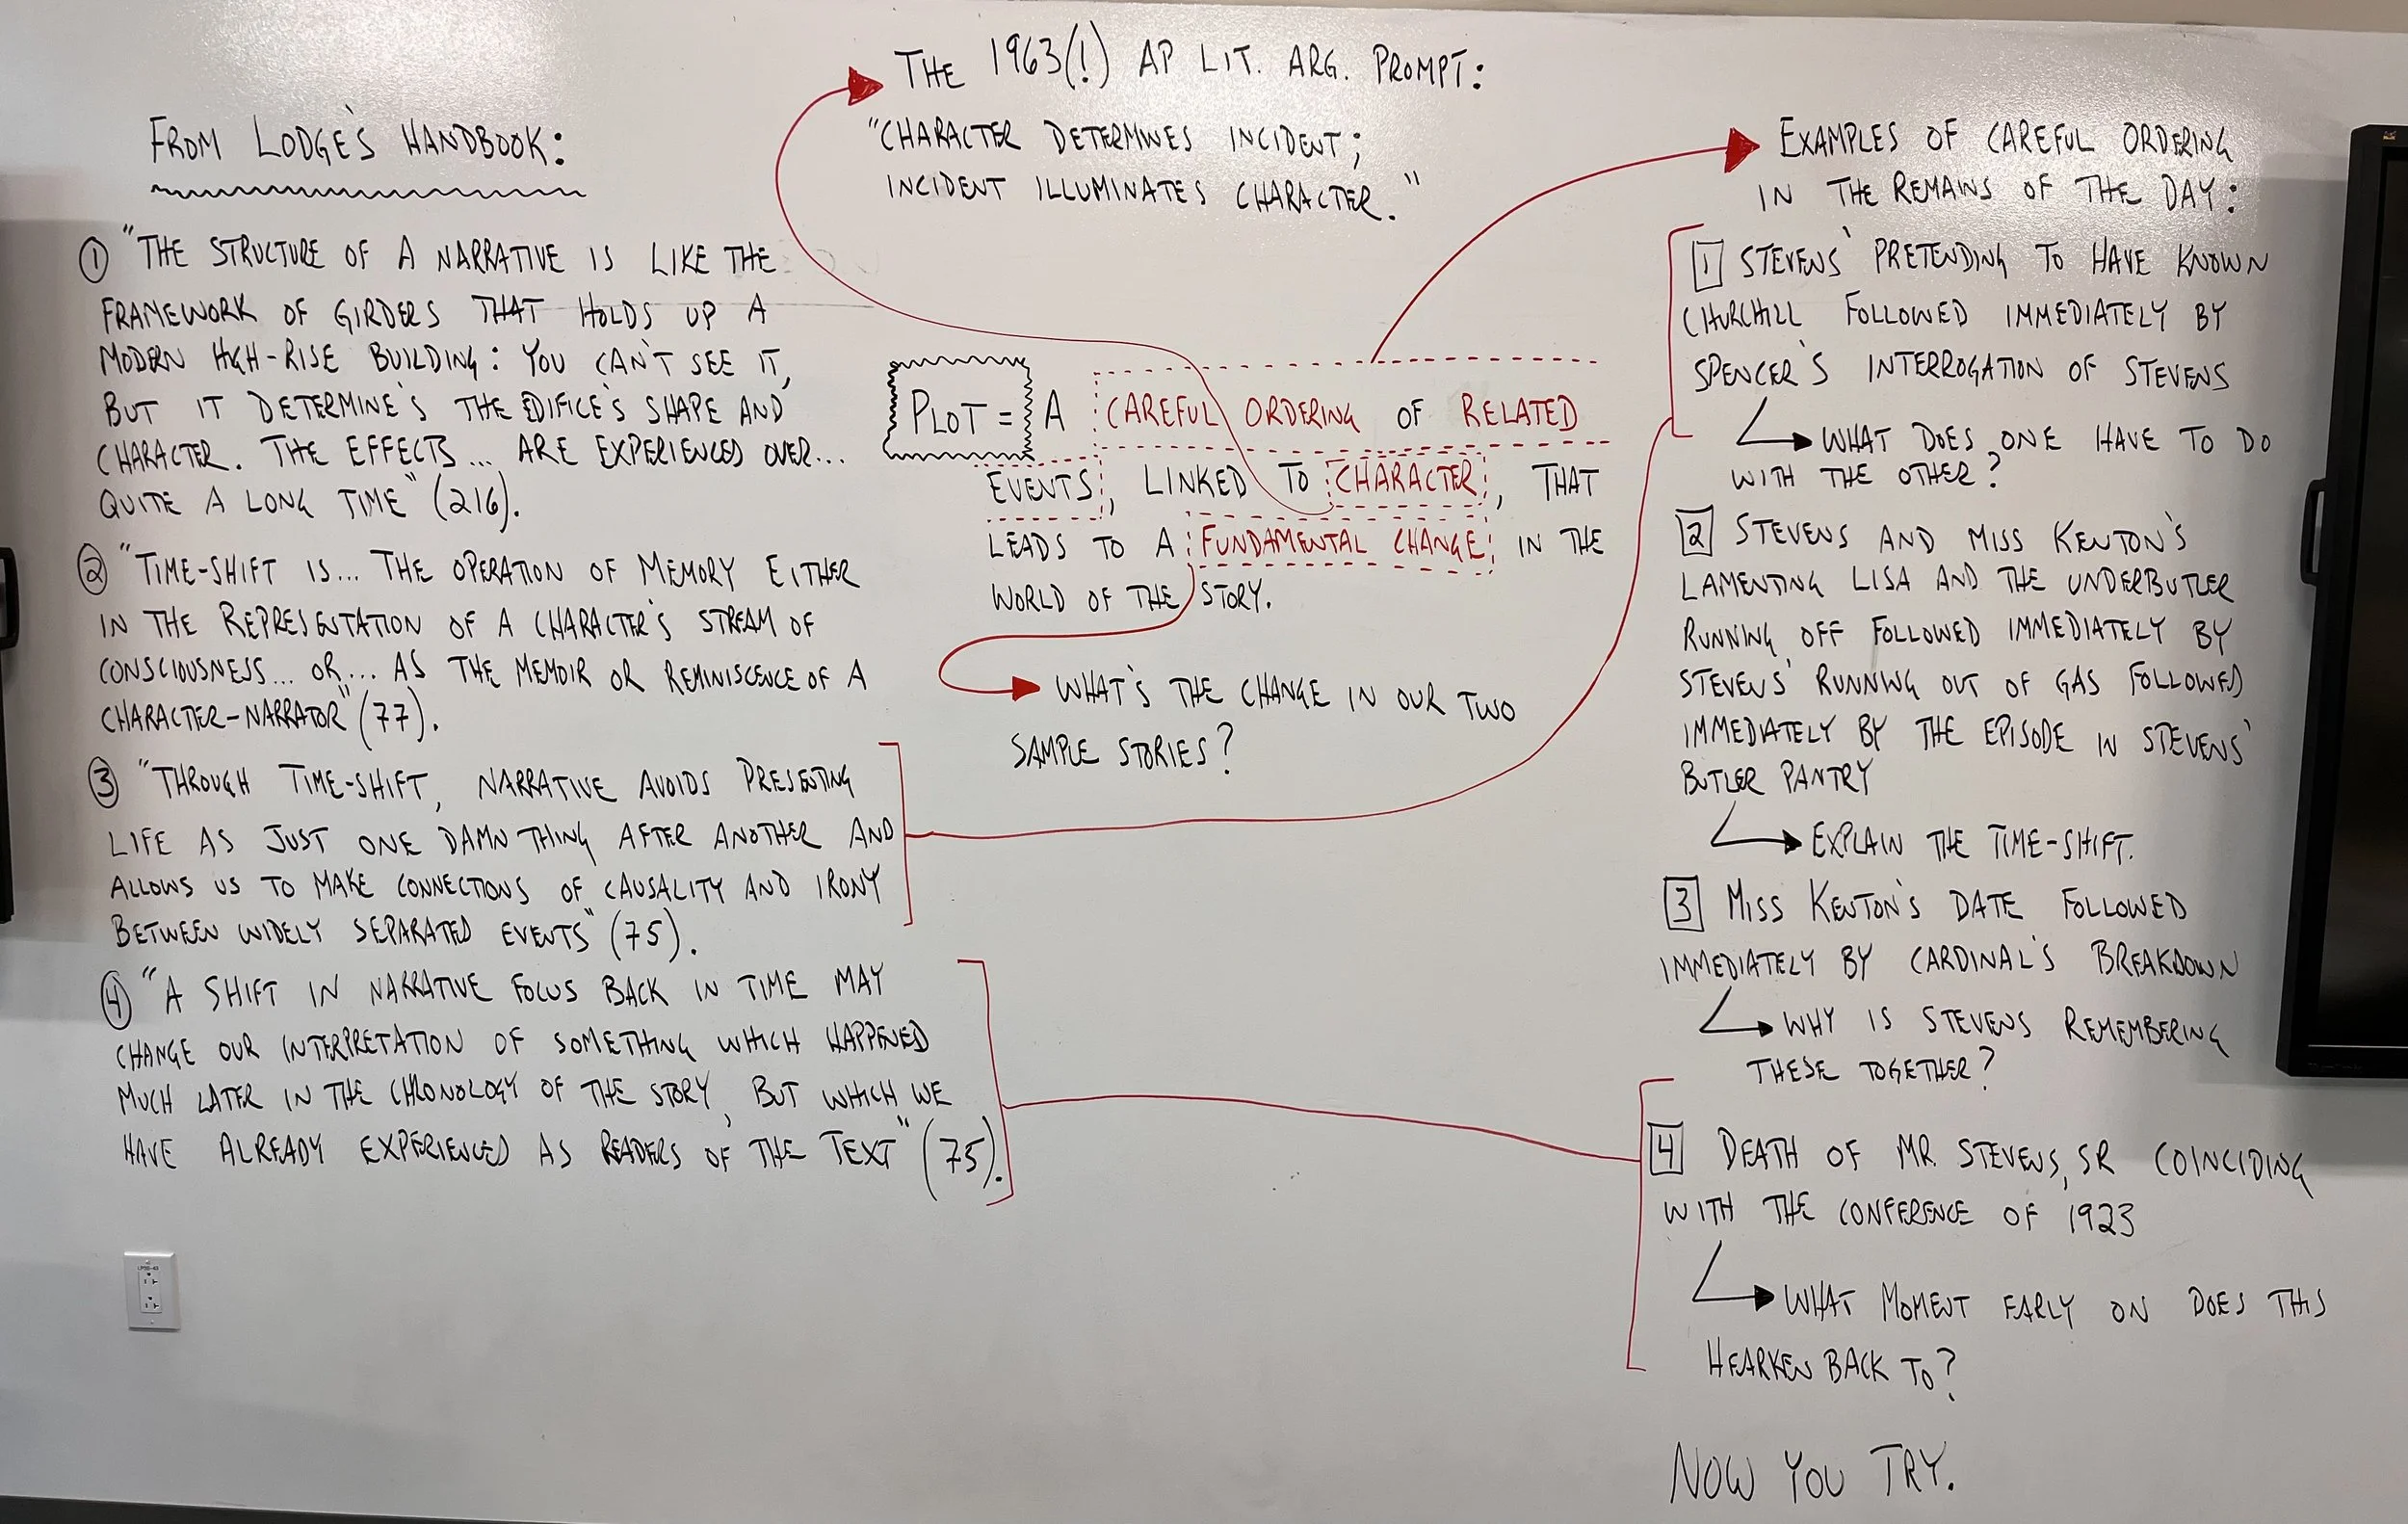 FROM LODGE'S HANDBOOK:
① "THE STRUCTURE OF A NARRATIVE IS LIKE THE
FRAMEWORK OF GIRDERS THAT HOLDS UP A
MODERN HIGH-RISE BUILDING: YOU CAN'T SEE IT,
BUT IT DETERMINE'S THE EDIFICE'S SHAPE AND
CHARACTER. THE EFFECTS... ARE EXPERIENCED OVER...
QUITE A LONG TIME" (216).
② "TIME-SHIFT IS... THE OPERATION OF MEMORY EITHER
IN THE REPRESENTATION OF A CHARACTER'S STREAM OF
CONSCIOUSNESS... OR... AS THE MEMOIR OR REMINISCENCE OF A
CHARACTER-NARRATOR" (77).
③ "THROUGH TIME-SHIFT, NARRATIVE AVOIDS PRESENTING
LIFE AS JUST ONE DAMN THING AFTER ANOTHER AND
ALLOWS US TO MAKE CONNECTIONS OF CAUSALITY AND IRONY
BETWEEN WIDELY SEPARATED EVENTS" (75).
④ "A SHIFT IN NARRATIVE FOCUS BACK IN TIME MAY
CHANGE OUR INTERPRETATION OF SOMETHING WHICH HAPPENED
MUCH LATER IN THE CHRONOLOGY OF THE STORY, BUT WHICH WE
HAVE ALREADY EXPERIENCED AS READERS OF THE TEXT" (75).
THE 1963(!) AP LIT. ARG. PROMPT:
"CHARACTER DETERMINES INCIDENT;
INCIDENT ILLUMINATES CHARACTER."
PLOT = A CAREFUL ORDERING OF RELATED
EVENTS, LINKED TO CHARACTER, THAT
LEADS TO A FUNDAMENTAL CHANGE IN THE
WORLD OF THE STORY.
WHAT'S THE CHANGE IN OUR TWO
SAMPLE STORIES?
EXAMPLES OF CAREFUL ORDERING
IN THE REMAINS OF THE DAY:
1 STEVENS' PRETENDING TO HAVE KNOWN
CHURCHILL FOLLOWED IMMEDIATELY BY
SPENCER'S INTERROGATION OF STEVENS
WHAT DOES ONE HAVE TO DO
WITH THE OTHER?
2 STEVENS AND MISS KENTON'S
LAMENTING LISA AND THE UNDERBUTLER
RUNNING OFF FOLLOWED IMMEDIATELY BY
STEVENS' RUNNING OUT OF GAS FOLLOWED
IMMEDIATELY BY THE EPISODE IN STEVENS'
BUTLER PANTRY
EXPLAIN THE TIME-SHIFT.
3 MISS KENTON'S DATE FOLLOWED
IMMEDIATELY BY CARDINAL'S BREAKDOWN
WHY IS STEVENS REMEMBERING
THESE TOGETHER?
4 DEATH OF MR. STEVENS, SR COINCIDING
WITH THE CONFERENCE OF 1923
WHAT MOMENT EARLY ON DOES THIS
HEARKEN BACK TO?
NOW YOU TRY.